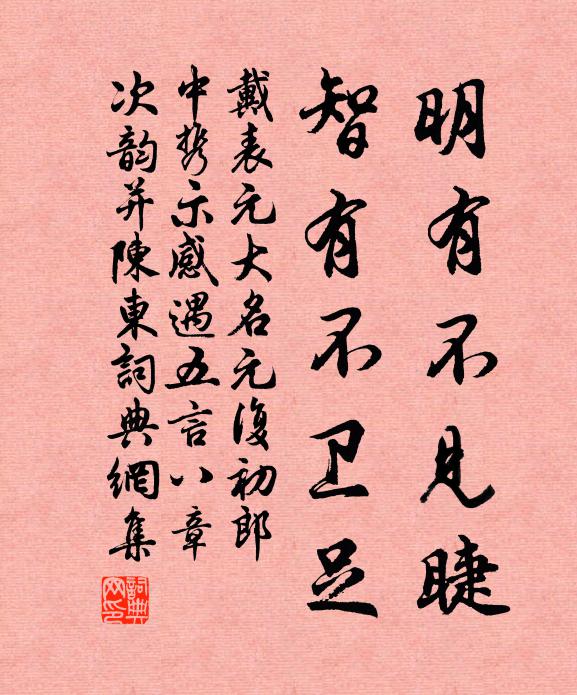 明有不见睫
智有不卫足
戴表元大名元復初郎
中携示感遇五言八章
次韵并陳東詞典網集
詞典网印